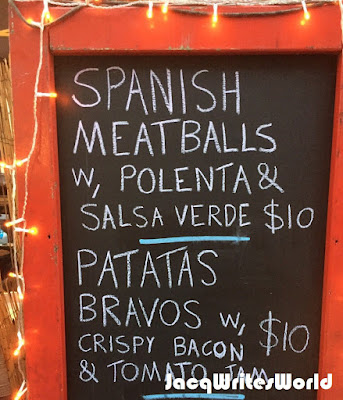 SPANISH
MEATBALLS
w, POLENTA &
SALSA VERDE $10
PATATAS
BRAVOS w,
CRISPY BACON $10
& TOMATO JAM
JacqWritesWorld